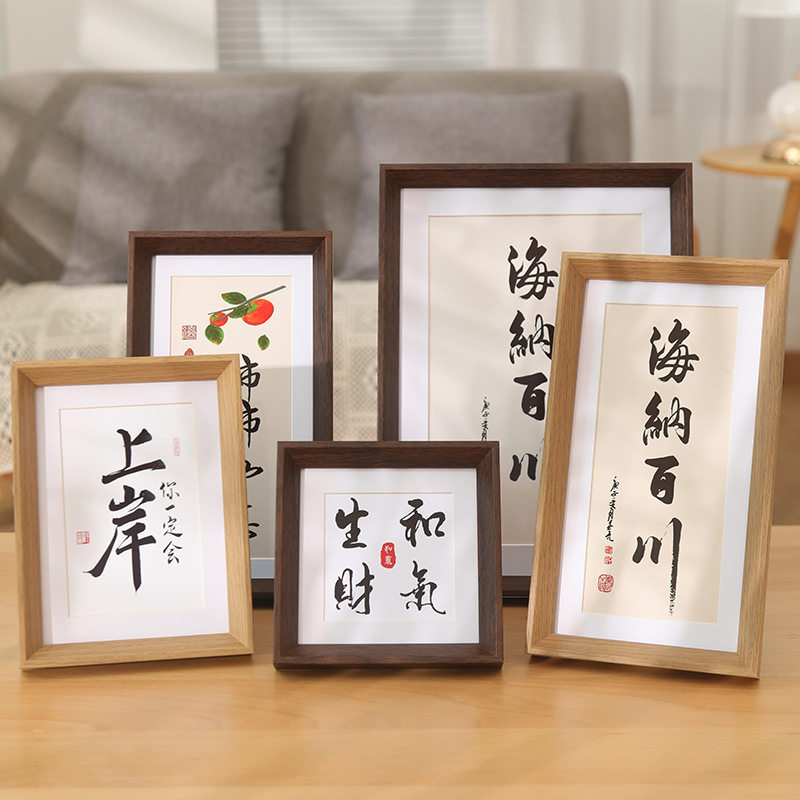 上岸
你一定会
和氣
生財
如意
海納百川
海納百川